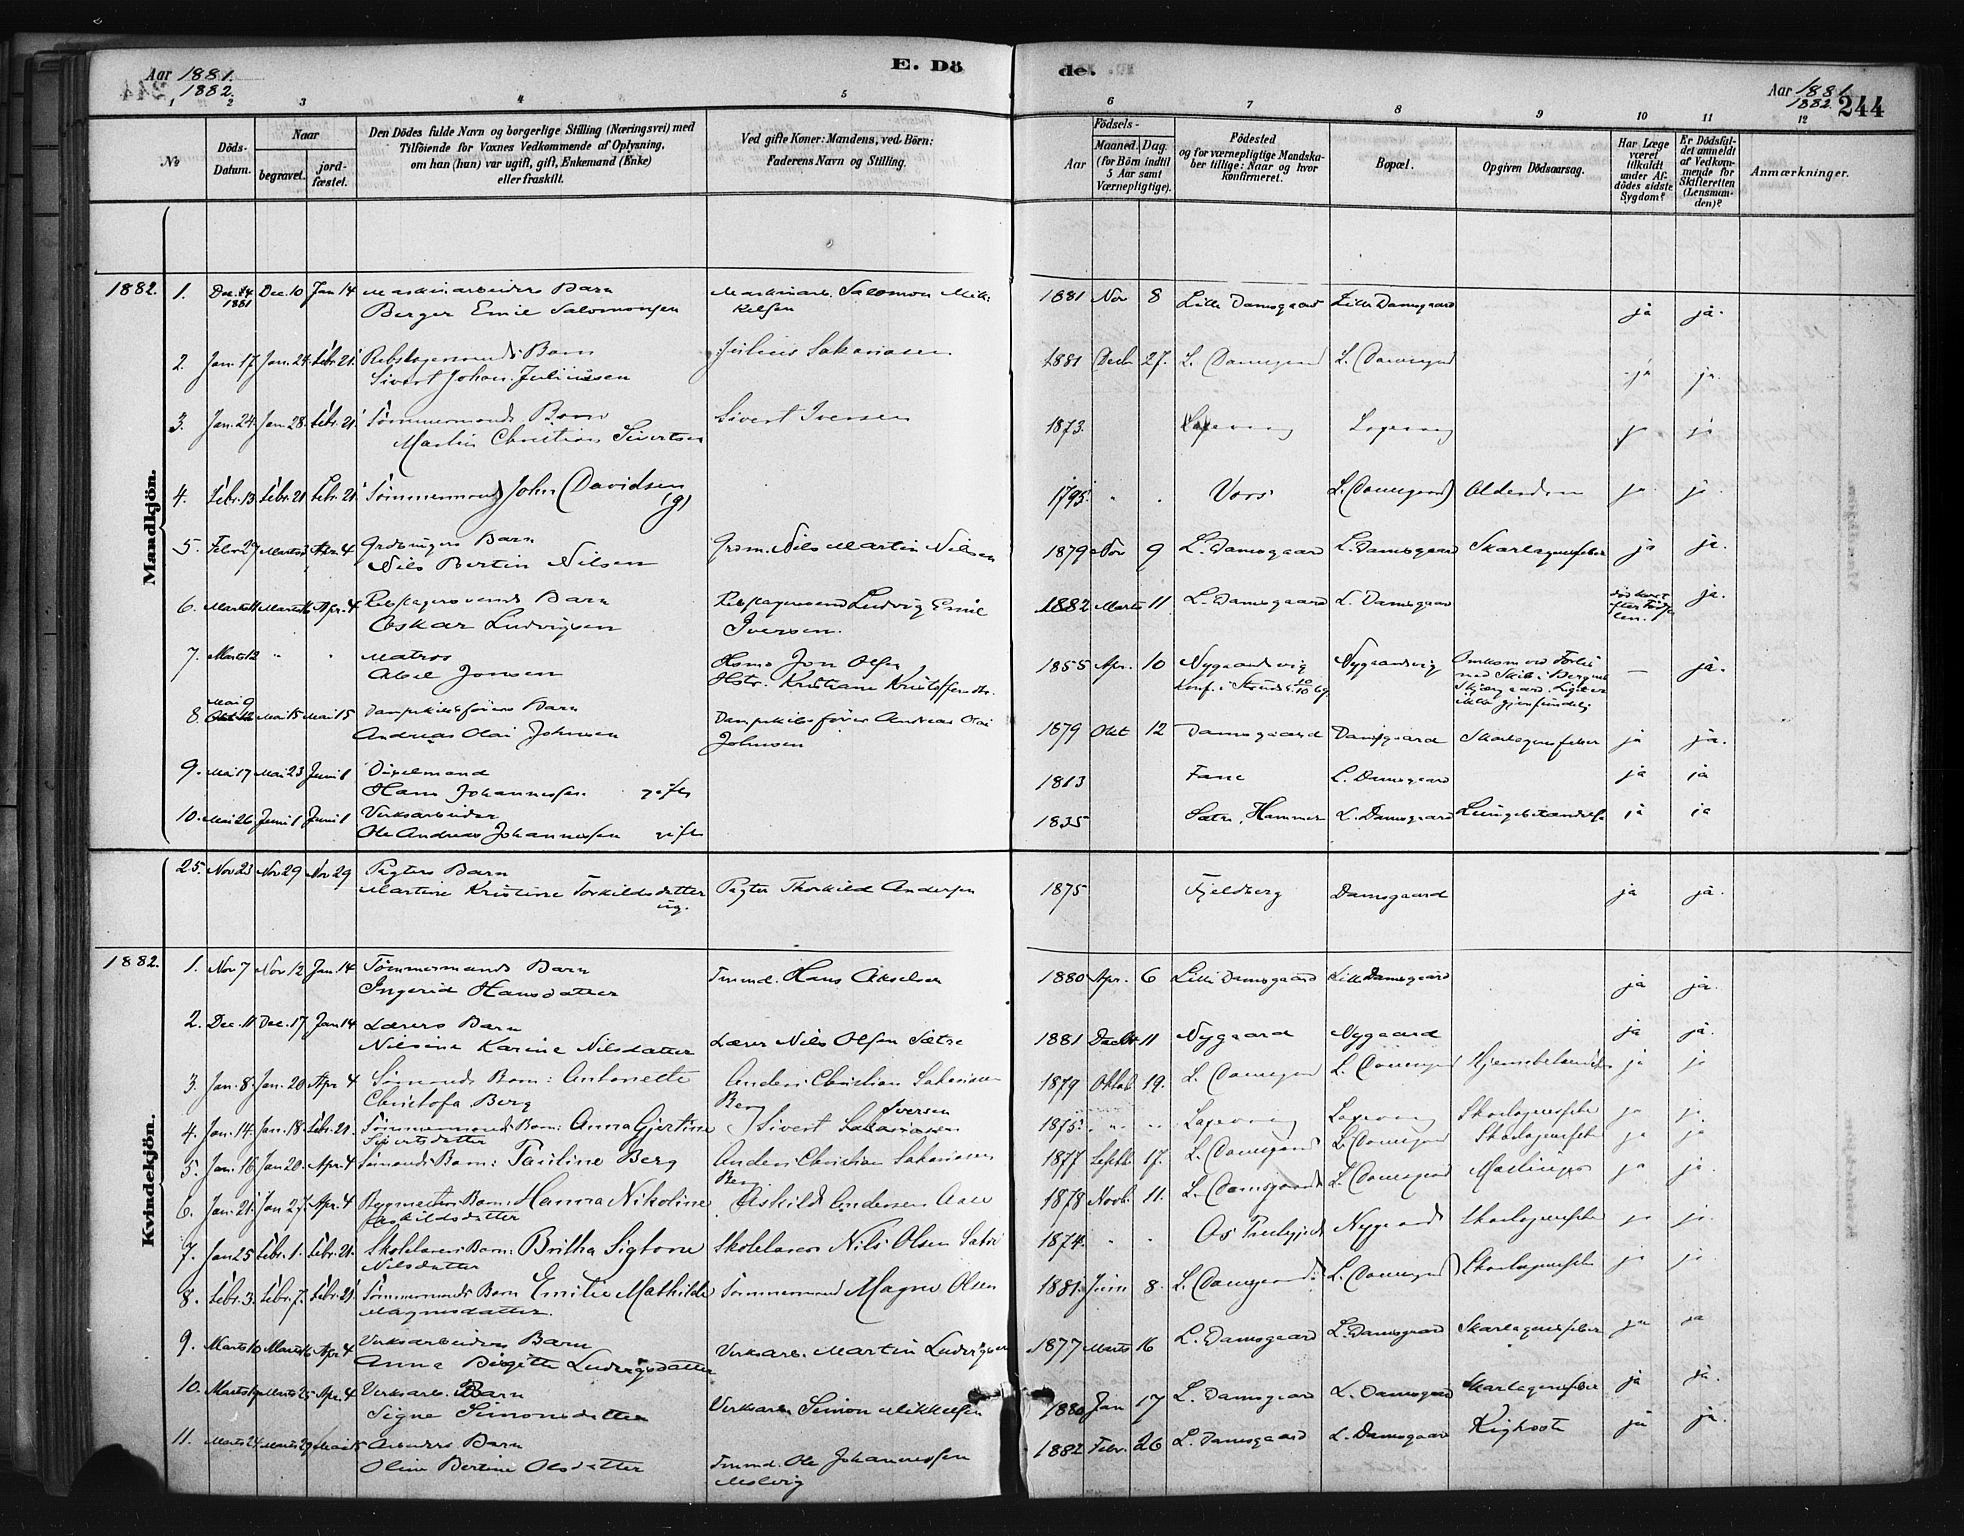 Aar 1881.
1882.
E. Dö
de.
Aar 1881
1882.
244
1 2 3 4 5 6 7 8 9 10 11 12
No
Döds-Datum.
Naar
begravet.
jord-fæstet.
Den Dödes fulde Navn og borgerlige Stilling (Næringsvei) med
Tilföiende for Voxnes Vedkommende af Oplysning,
om han (hun) var ugift, gift, Enkemand (Enke)
eller fraskilt.
Ved gifte Koner: Mandens, ved Börn:
Faderens Navn og Stilling.
Födsels-
Aar
Maaned. Dag.
(for Börn indtil
5 Aar samt
Værnepligtige).
Födested
og for værnepligtige Mandska-
ber tillige: Naar og hvor
konfirmeret.
Bopæl.
Opgiven Dödsaarsag.
Har Læge
været
tilkaldt
under Af-
dödes sidste
Sygdom?
Er Dödsfal-
det anmeldt
af Vedkom-
mende for
Skifteretten
(Lensman-
den)?
Anmærkninger.
Mandkjön.
1882. 1. Dec. 1881 Dec. 10 Jan 14 Maskinarbeiders Barn Maskinarb. Salomon Mik- 1881 Nov 8 Lille Damsgaard Lille Damsgaard ja ja.
Berger Emil Salomonsen kelsen
2. Jan. 17 Jan. 24. Febr. 21. Rebslagersvends Barn Julius Sakariasen 1881 Decb 27. L. Damsgaard L. Damsgaard ja ja.
Sivert Johan Juliussen
3. Jan. 24. Jan. 28. Febr. 21. Tømmermands Barn Sivert Iversen 1873. Laxevaag Laxevaag ja ja
Martin Christian Sivertsen
4. Febr. 13 Febr. 21 Febr. 21. Tømmermand John Davidsen 1795. Vors L. Damsgaard Alderdom ja ja.
(g)
5. Febr 27 Marts 3 Apr. 4 Barn Nils Martin Nilsen 1879 Nov 9 L. Damsgaard L. Damsgaard Skarlagensfeber ja ja.
Nils Bertin Nilsen
6. Marts 11 Marts 16 Apr. 4 Rebslagersvends Barn Rebslagersvend Ludvig Emil 1882 Marts 11. L. Damsgaard L. Damsgaard død kort ja.
Oskar Ludvigsen Iversen. efter Føds-
len.
7. Marts 12 " " Matros Jon Olsen 1855 Apr. 10 Nygaardsvig Nygaardsvig Omkom ved Forlis — ja.
Abel Jonsen Kristiane Kristoffersdtr. Konf. i med Skib i
ikke gjenfundet
8. Mai 9 Mai 15 Mai 15 Dampskibsførers Barn Dampskibsfører Andreas Olai 1879 Okt 12 Damsgaard Damsgaard Skarlagensfeber ja ja.
Andreas Olai Johnsen Johnsen
9. Mai 17 Mai 23 Juni 1 1813 Fane L. Damsgaard ja ja
Hans Johannessen gift
10. Mai 26 Juni 1 Juni 1 Verksarbeider 1835 Sætre, Hammer L. Damsgaard Lungebetændelse ja ja
Ole Andreas Johannessen gift
25. Nov 23 Nov 29 Nov 29 Pagters Barn Pagter Thorkild Andersen 1875 Fjeldberg Damsgaard ja ja.
Martine Kristine Torkildsdatter
ug.
Kvindekjön.
1882. 1. Nov 7 Nov 12 Jan. 14 Tømmermands Barn Tmmd. Hans Akselsen 1880 Apr. 6 Lille Damsgaard Lille Damsgaard ja ja.
Ingerid Hansdatter
2. Dec. 11 Dec. 17 Jan 14 Lærers Barn Lærer Nils Olsen Sætre 1881 Decbr 11 Nygaard Nygaard ja ja.
Nilsine Karine Nilsdatter
3. Jan. 8. Jan. 20. Apr 4 Sømands Barn: Antonette Anders Christian Sakariasen 1879 Oktob 19. L. Damsgaard L. Damsgaard Hjernebetændelse ja ja
Christofa Berg Berg
4. Jan. 14. Jan. 18. Febr. 21. Tømmermands Barn: Anna Gjertine Sivert Iversen 1875. " " Laxevaag Laxevaag Skarlagensfeber ja ja.
Sivertsdatter
5. Jan. 16 Jan 20. Apr. 4 Sømands Barn: Pauline Berg Anders Christian Sakariasen 1877 Septb. 17. L. Damsgaard L. Damsgaard Skarlagensfeber ja ja
Berg
6. Jan. 21. Jan 27. Apr. 4 Barn: Hanna Nikoline Askild Andersen Aase 1878 Novb. 11. L. Damsgaard L. Damsgaard Mæslinger ja ja.
Askildsdatter
7. Jan 25 Febr. 1. Febr. 21. Skolelærers Barn: Britha Sigtone Skolelærer Nils Olsen Sætre 1874. " Os Nygaard Skarlagensfeber ja ja.
Nilsdatter
8. Febr. 3. Febr. 7. Febr. 21. Tømmermands Barn Emilie Mathilde Tømmermand Magne Olsen 1881. Juni 8. L. Damsgaard L. Damsgaard Skarlagensfeber ja ja.
Magnesdatter
9. Marts 10 Marts 16 Apr. 4 Verksarbeiders Barn Verksarb. Martin Ludvigsen 1877 Marts 16 L. Damsgaard L. Damsgaard Skarlagensfeber ja ja
Anna Birgitte Ludvigsdatter
10. Marts Marts 25 Apr. 4 Verksarb. Barn Verksarb Simon Mikkelsen 1880 Jan 17 L. Damsgaard L. Damsgaard Skarlagensfeber ja ja.
Signe Simonsdatter
11. Marts 24 Marts 29 Mai 15 Arbeiders Barn Tmmd. Ole Johannessen 1882 Febr. 26 L. Damsgaard L. Damsgaard Kighoste ja ja.
Oline Bertine Olsdatter Melvig